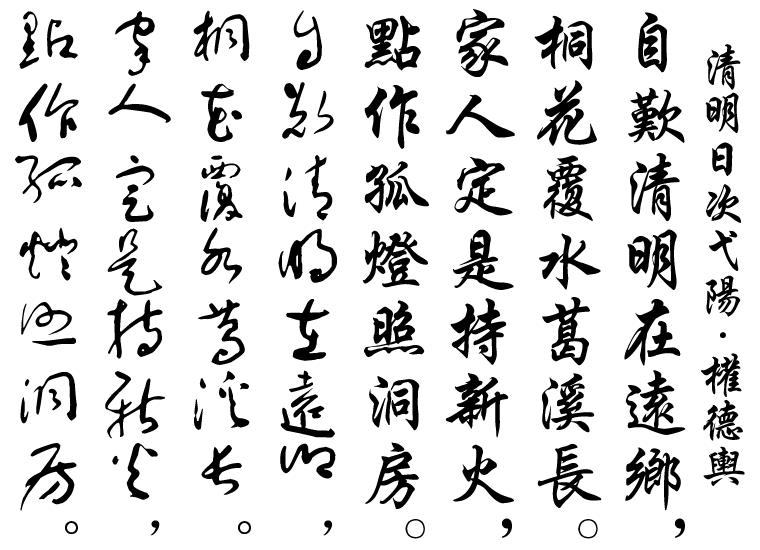 清明日次弋陽·權德輿
自歎清明在遠鄉，
桐花覆水葛溪長。
家人定是持新火，
點作孤燈照洞房。
自歎清明在遠鄉，
桐花覆水葛溪長。
家人定是持新火，
點作孤燈照洞房。